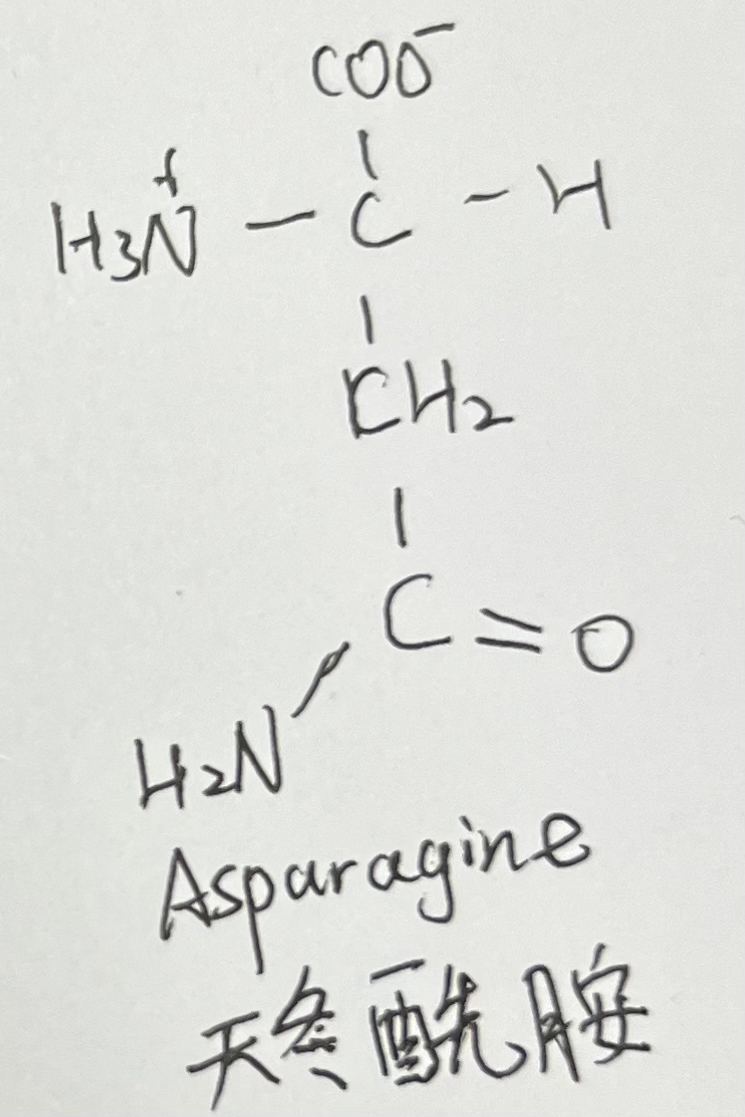 COO⁻
H₃N⁺ – C – H
CH₂
C = O
H₂N
Asparagine
天冬酰胺